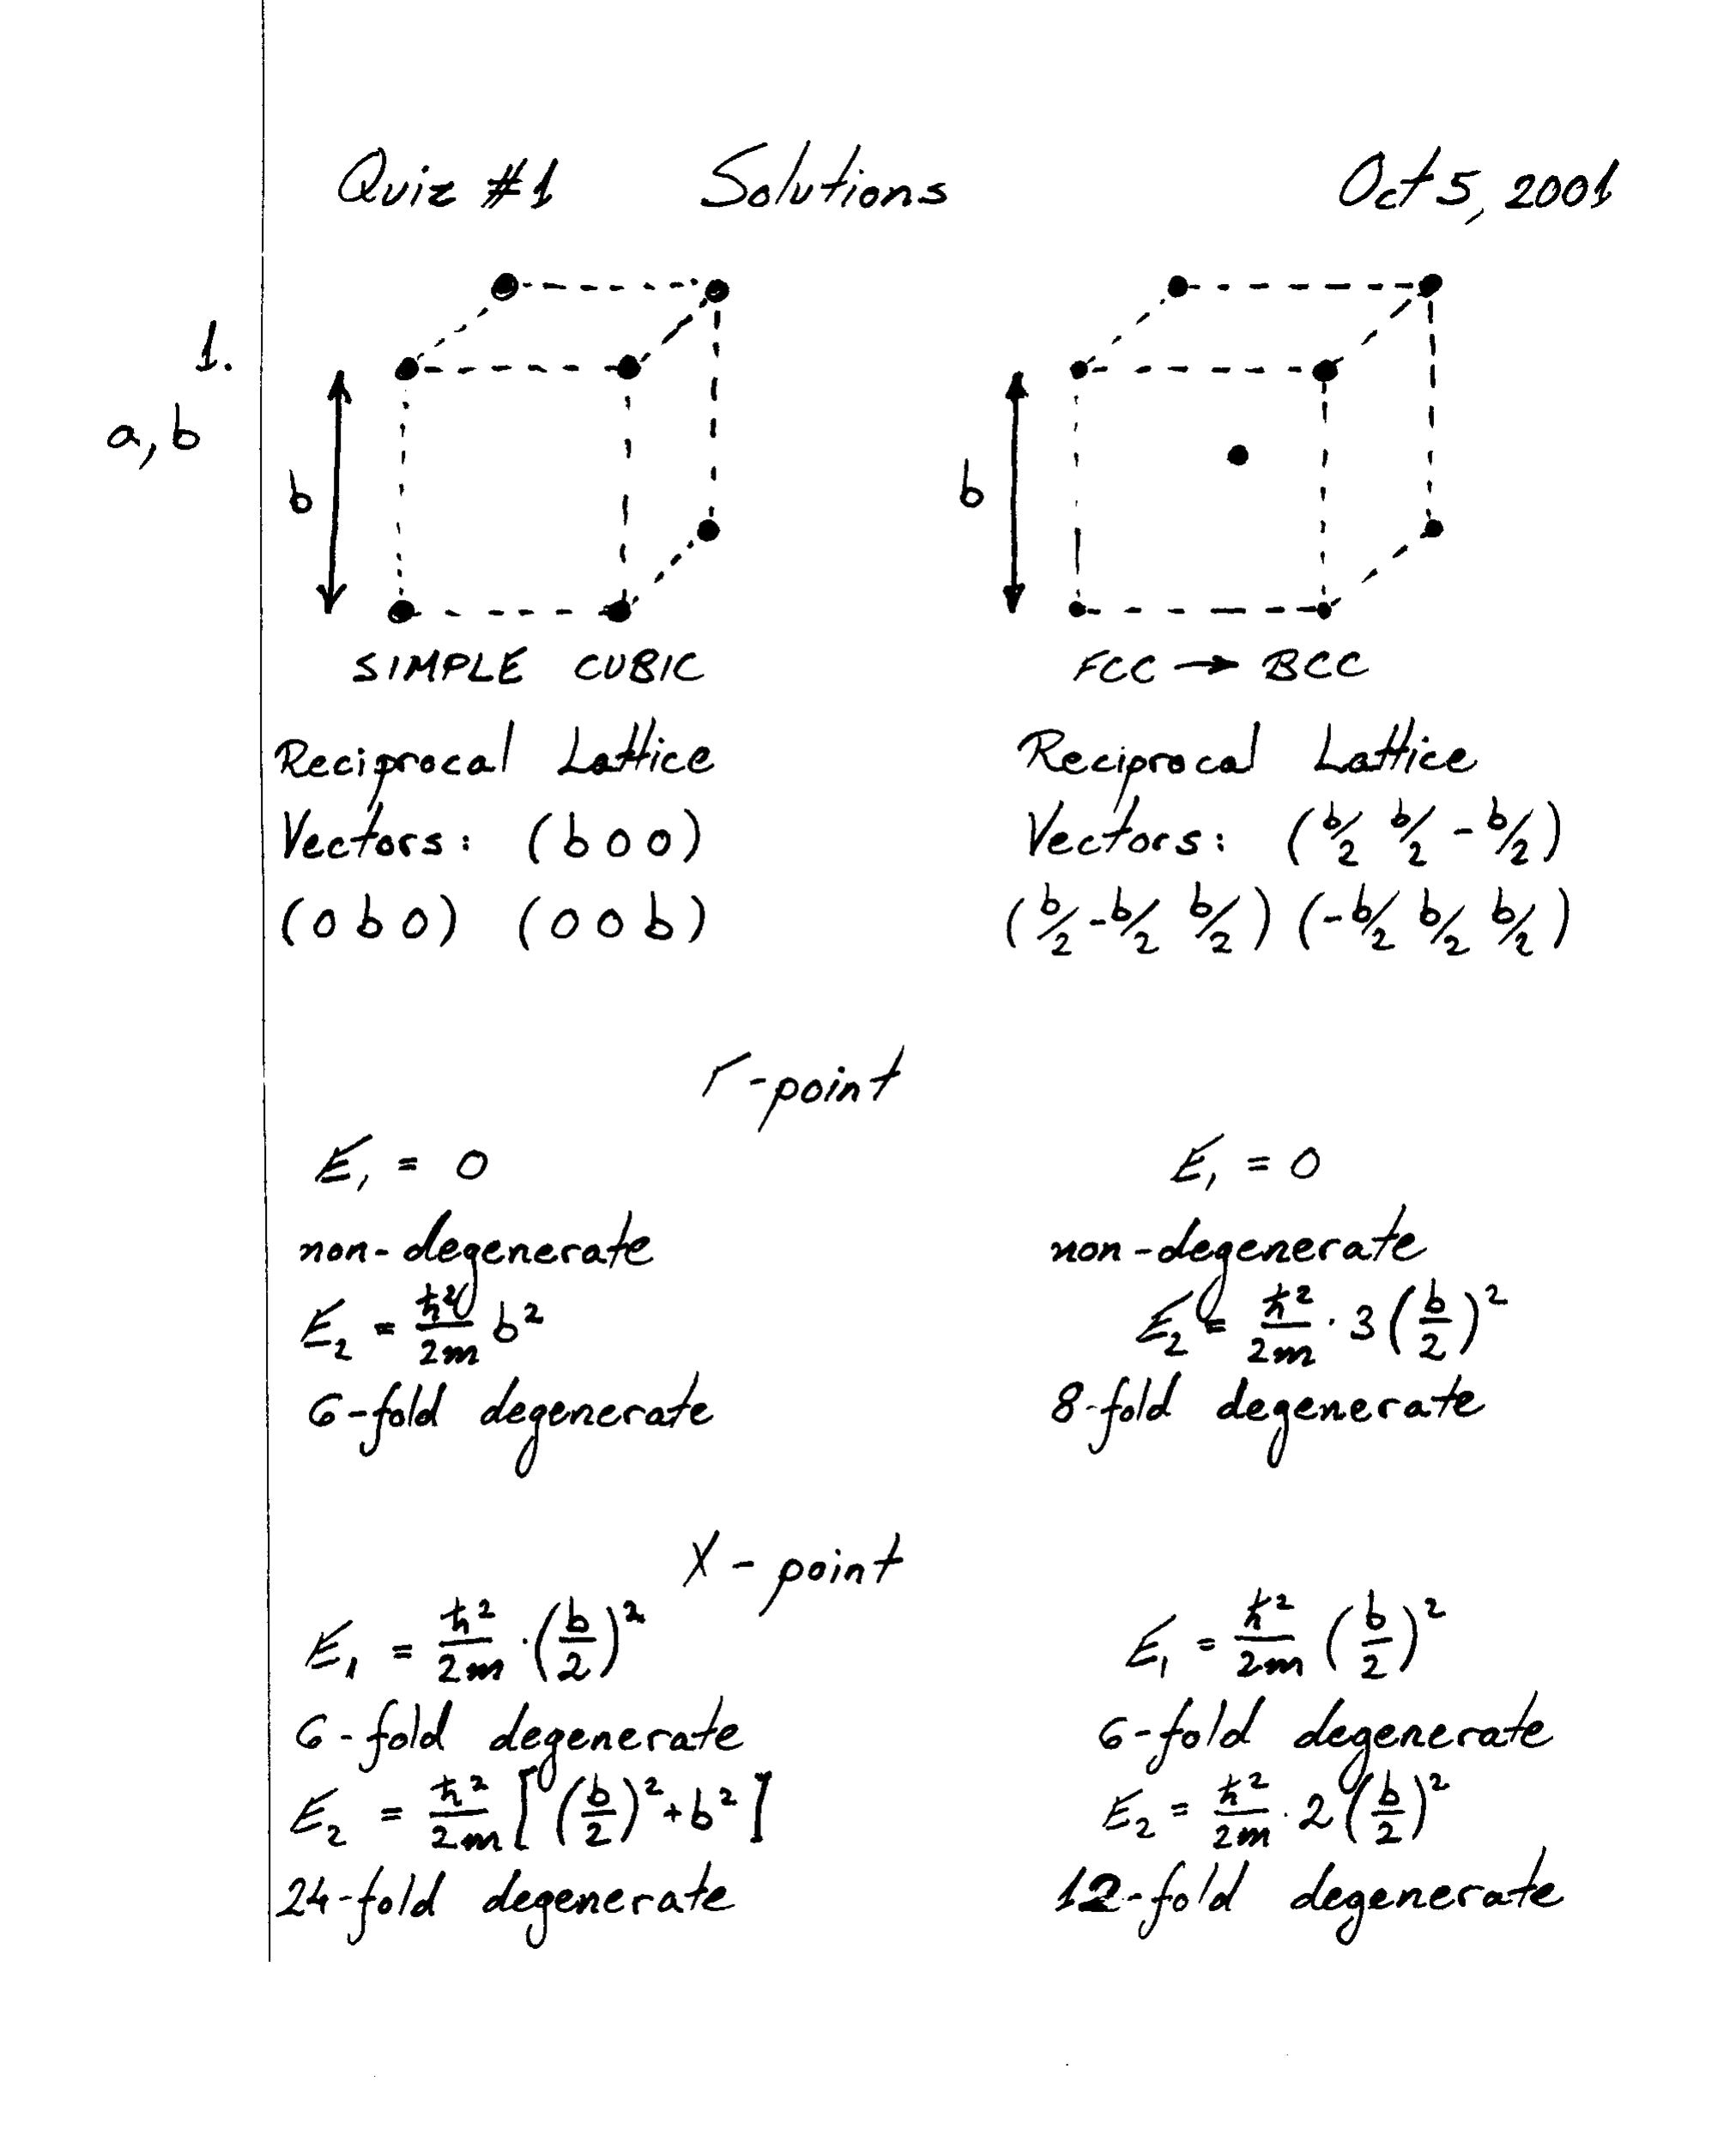 Quiz #1 Solutions Oct 5, 2001
1.
a, b
b
b
SIMPLE CUBIC
FCC → BCC
Reciprocal Lattice
Vectors: (b 0 0)
(0 b 0) (0 0 b)
Reciprocal Lattice
Vectors: (b/2 b/2 -b/2)
(b/2 -b/2 b/2) (-b/2 b/2 b/2)
Γ-point
E₁ = 0
non-degenerate
E₂ = ħ²/2m b²
6-fold degenerate
E₁ = 0
non-degenerate
E₂ = ħ²/2m · 3(b/2)²
8-fold degenerate
X-point
E₁ = ħ²/2m · (b/2)²
6-fold degenerate
E₂ = ħ²/2m [(b/2)² + b²]
24-fold degenerate
E₁ = ħ²/2m (b/2)²
6-fold degenerate
E₂ = ħ²/2m · 2(b/2)²
12-fold degenerate